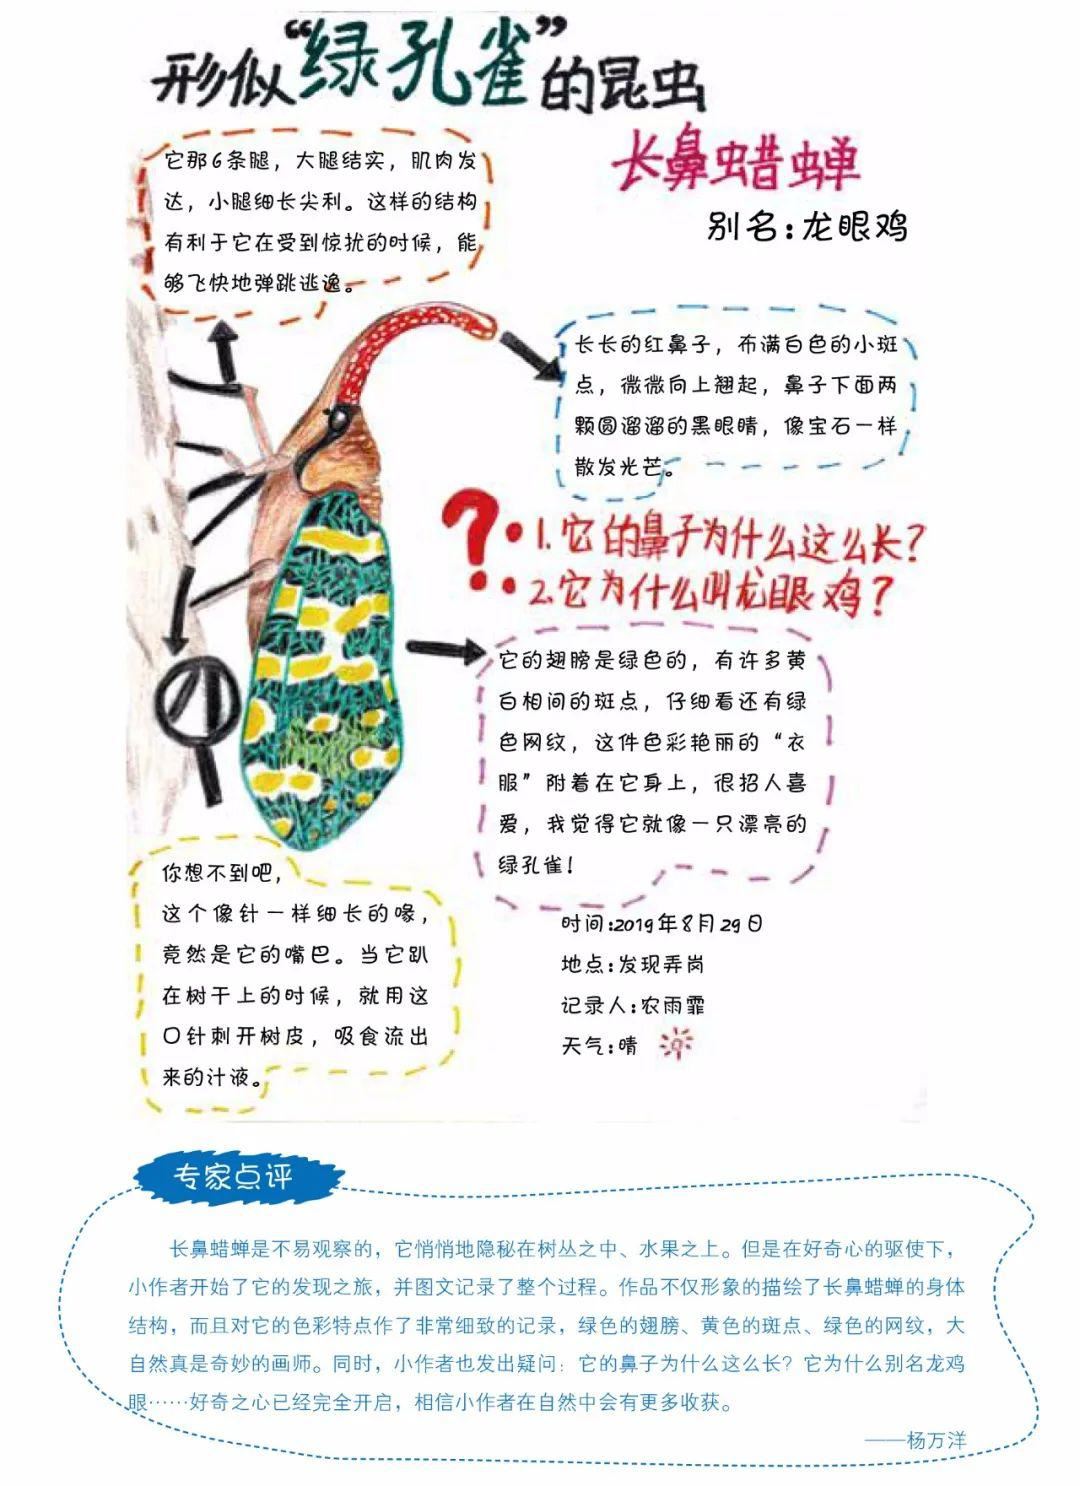 形似“绿孔雀”的昆虫
长鼻蜡蝉
别名:龙眼鸡
它那6条腿，大腿结实，肌肉发
达，小腿细长尖利。这样的结构
有利于它在受到惊扰的时候，能
够飞快地弹跳逃逸。
长长的红鼻子，布满白色的小斑
点，微微向上翘起，鼻子下面两
颗圆溜溜的黑眼睛，像宝石一样
散发光芒。
?
1.它的鼻子为什么这么长?
2.它为什么叫龙眼鸡?
它的翅膀是绿色的，有许多黄
白相间的斑点，仔细看还有绿
色网纹，这件色彩艳丽的“衣
服”附着在它身上，很招人喜
爱，我觉得它就像一只漂亮的
绿孔雀!
你想不到吧，
这个像针一样细长的喙，
竟然是它的嘴巴。当它趴
在树干上的时候，就用这
口针刺开树皮，吸食流出
来的汁液。
时间:2019年8月29日
地点:发现弄岗
记录人:农雨霏
天气:晴
专家点评
长鼻蜡蝉是不易观察的，它悄悄地隐秘在树丛之中、水果之上。但是在好奇心的驱使下，
小作者开始了它的发现之旅，并图文记录了整个过程。作品不仅形象的描绘了长鼻蜡蝉的身体
结构，而且对它的色彩特点作了非常细致的记录，绿色的翅膀、黄色的斑点、绿色的网纹，大
自然真是奇妙的画师。同时，小作者也发出疑问：它的鼻子为什么这么长？它为什么别名龙鸡
眼……好奇之心已经完全开启，相信小作者在自然中会有更多收获。
——杨万洋